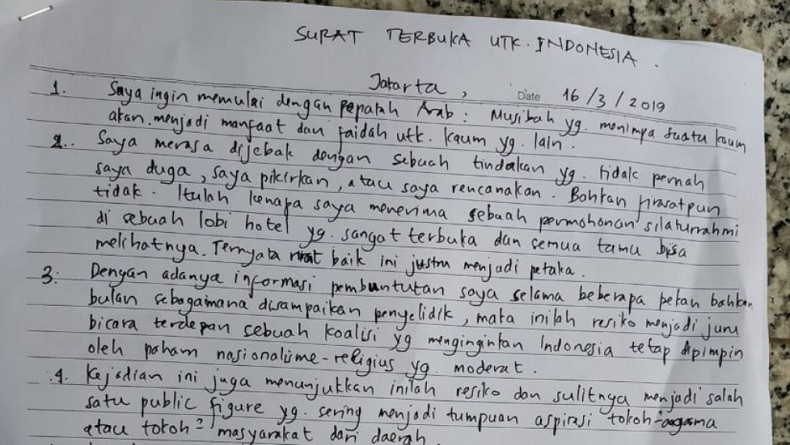 SURAT TERBUKA UTK. INDONESIA.
Jakarta, Date 16/3/2019
1. Saya ingin memulai dengan pepatah Arab: Musibah yg. menimpa suatu kaum
akan menjadi manfaat dan faidah utk. kaum yg. lain.
2. Saya merasa dijebak dengan sebuah tindakan yg. tidak pernah
saya duga, saya pikirkan, atau saya rencanakan. Bahkan firasatpun
tidak. Itulah kenapa saya menerima sebuah permohonan silaturrahmi
di sebuah lobi hotel yg. sangat terbuka dan semua tamu bisa
melihatnya. Ternyata niat baik ini justru menjadi petaka.
3. Dengan adanya informasi pembuntutan saya selama beberapa pekan bahkan
bulan sebagaimana disampaikan penyelidik, maka inilah resiko menjadi juru
bicara terdepan sebuah koalisi yg menginginkan Indonesia tetap dipimpin
oleh paham nasionalime-religius yg. moderat.
4. Kejadian ini juga menunjukkan inilah resiko dan sulitnya menjadi salah
satu public figure yg. sering menjadi tumpuan aspirasi tokoh² agama
atau tokoh² masyarakat dari daerah.